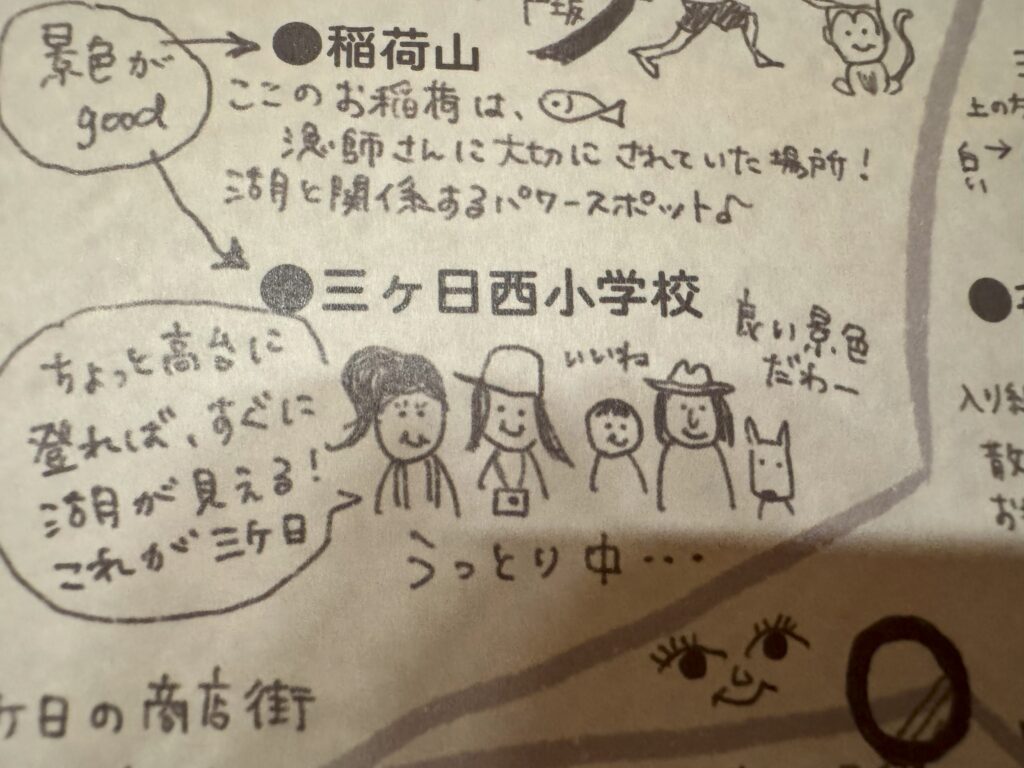 景色が
good
●稲荷山
ここのお稲荷は、
漁師さんに大切にされていた場所!
湖と関係するパワースポット♪
●三ヶ日西小学校
ちょっと高台に
登れば、すぐに
湖が見える!
これが三ケ日
いいね
良い景色
だわー
うっとり中・・・
ケ日の商店街
坂
上の
白い→
入り
散
お